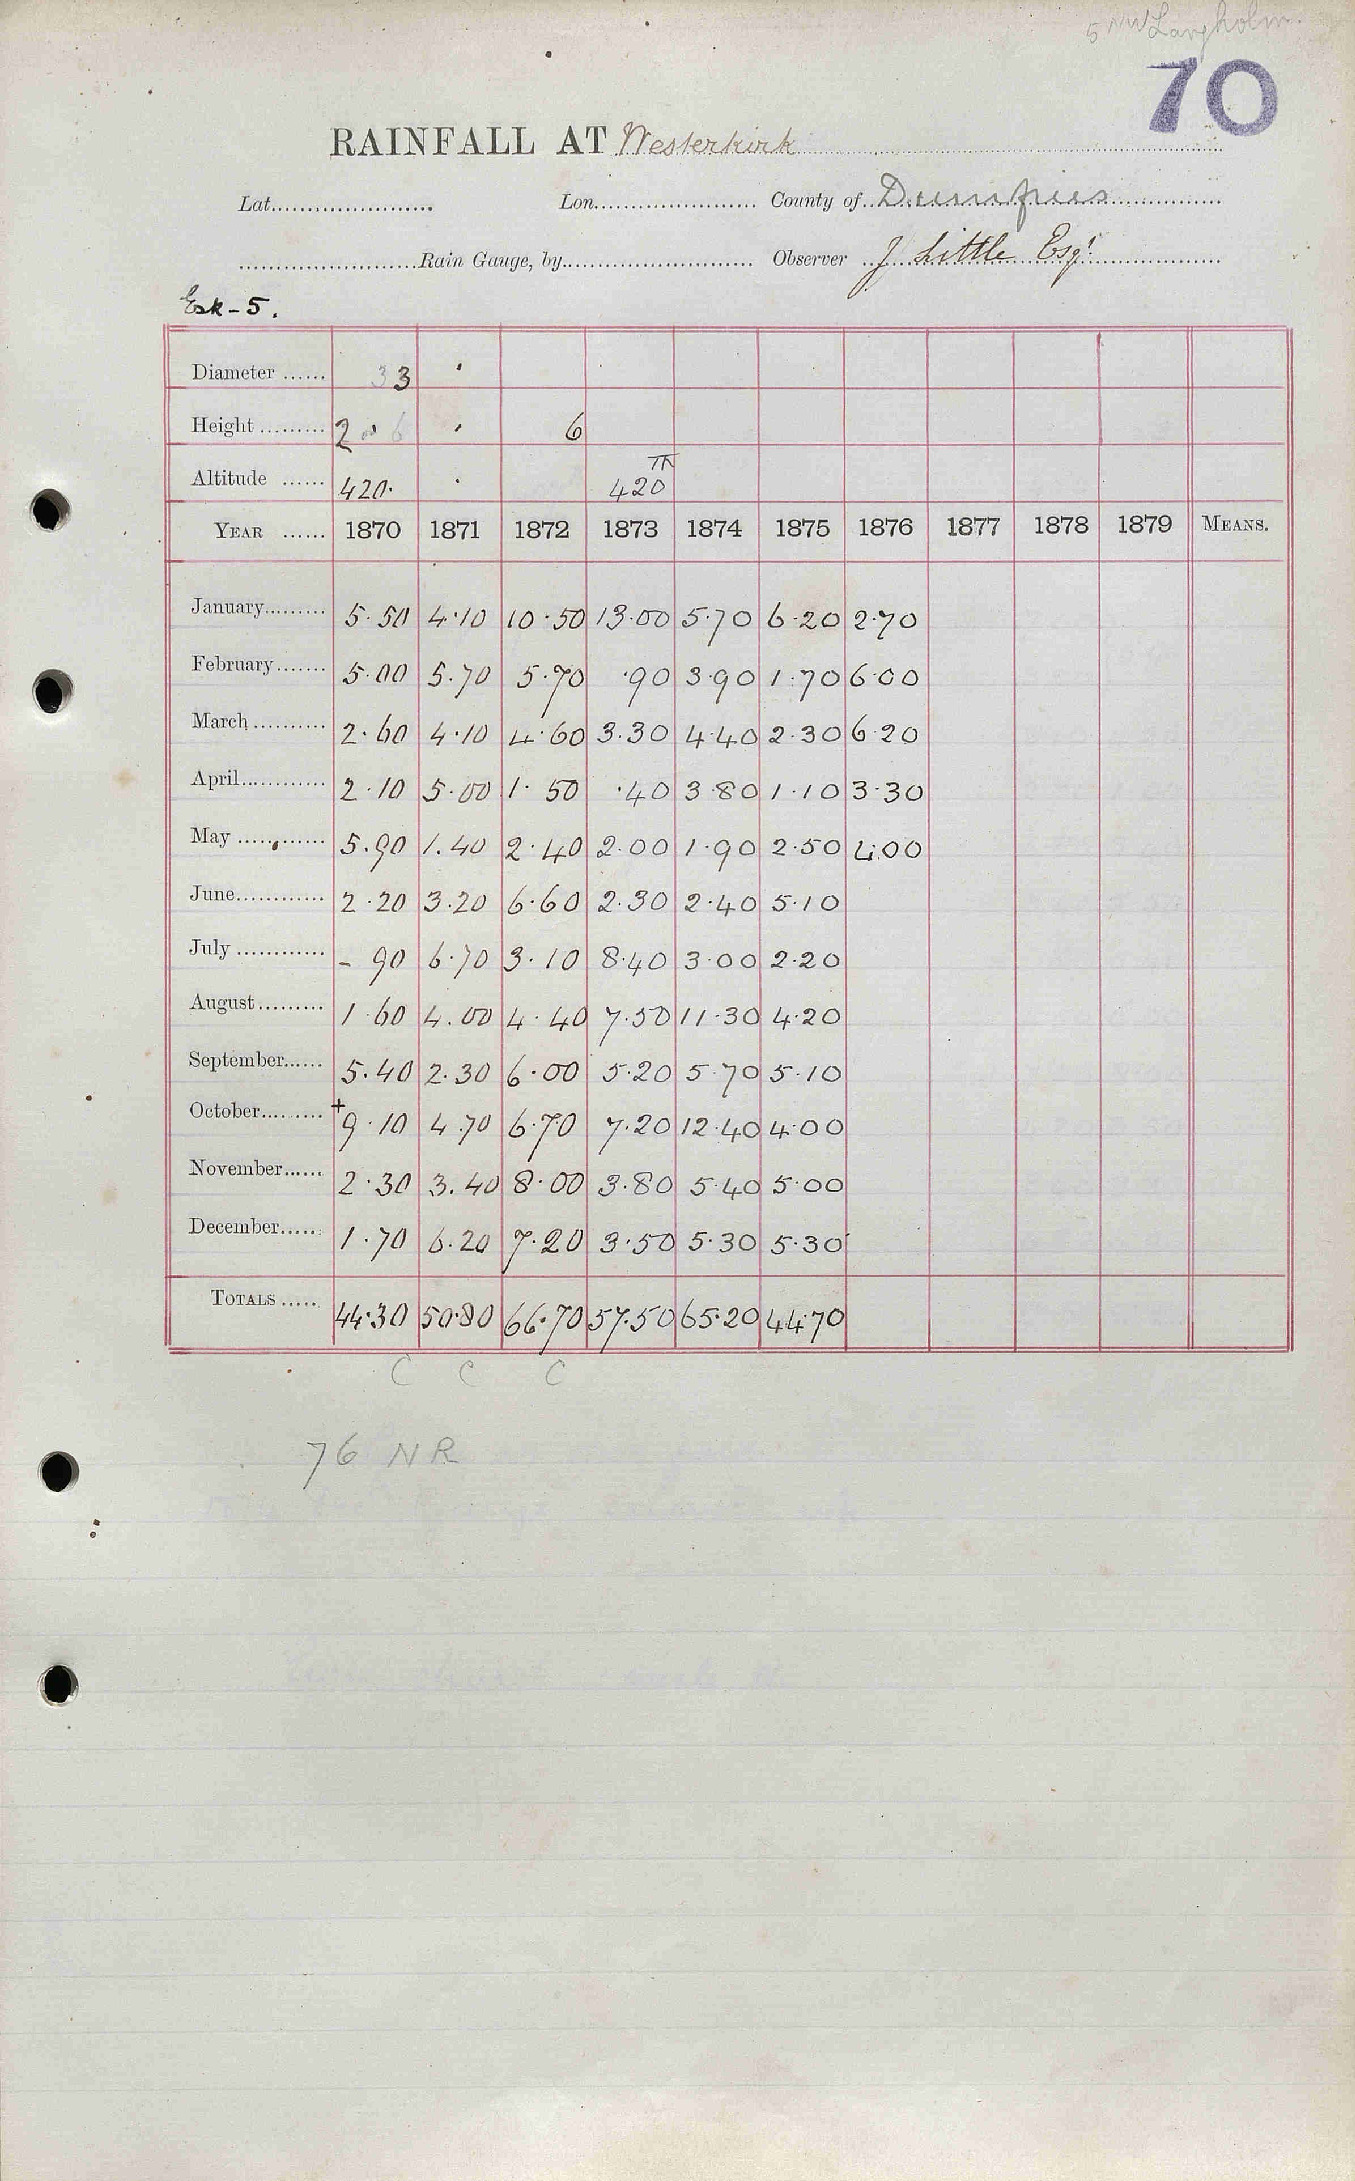 5 NW Langholm.
70
RAINFALL AT Westerkirk
Lat. Lon. County of Dumfries
Rain Gauge, by Observer J Little Esqr
Esk-5.
Diameter 3 3
Height 2 6 6
Altitude 420. 420
YEAR 1870 1871 1872 1873 1874 1875 1876 1877 1878 1879 MEANS.
January 5.50 4.10 10.50 13.00 5.70 6.20 2.70
February 5.00 5.70 5.70 .90 3.90 1.70 6.00
March 2.60 4.10 4.60 3.30 4.40 2.30 6.20
April 2.10 5.00 1.50 .40 3.80 1.10 3.30
May 5.90 1.40 2.40 2.00 1.90 2.50 4.00
June 2.20 3.20 6.60 2.30 2.40 5.10
July - 90 6.70 3.10 8.40 3.00 2.20
August 1.60 4.00 4.40 7.50 11.30 4.20
September 5.40 2.30 6.00 5.20 5.70 5.10
October +9.10 4.70 6.70 7.20 12.40 4.00
November 2.30 3.40 8.00 3.80 5.40 5.00
December 1.70 6.20 7.20 3.50 5.30 5.30
TOTALS 44.30 50.80 66.70 57.50 65.20 44.70
C C C
76 NR